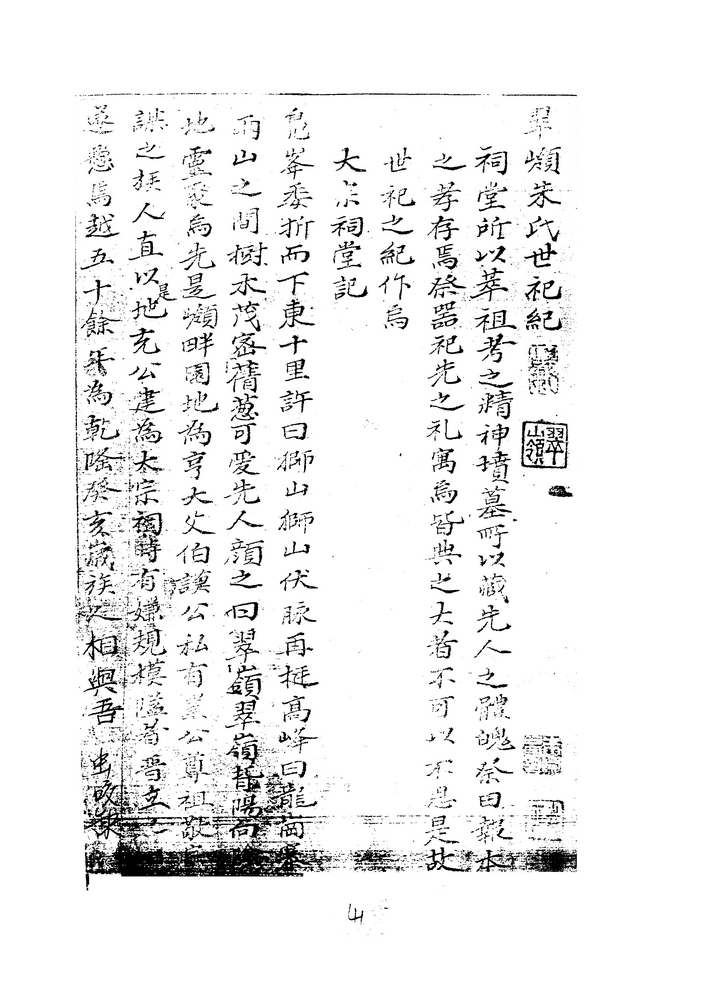 翠嶺朱氏世祀紀
翠嶺
祠堂所以萃祖考之精神墳墓所以藏先人之體魄祭田報本
之孝存焉祭器祀先之礼寓焉皆典之大者不可以不思是故
世祀之紀作焉
大宗祠堂記
峯委折而下東十里許曰獅山獅山伏脉再挺高峰曰龍崗
兩山之間樹水茂密蓊葱可愛先人顔之曰翠嶺翠嶺陽向
地靈聚焉先是嶺畔園地為亨大父伯謨公私有業公尊祖敬
謀之族人直以是地充公建為大宗祠時有嫌規模隘者晋立
遂懸焉越五十餘年為乾隆癸亥歲族人相與吾